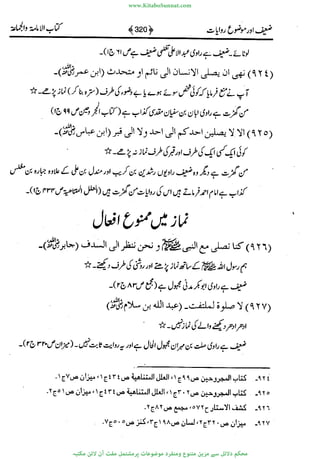 www.KitaboSunnat.com
ضعیف اور موضوع روایات ﴿320﴾ کتاب الامامة والجماعة
لوٹائے۔ ضعیف ہے راوی عبدالاعلی تغلبی ضعیف ہے ص۶۱ ج۱)۔
(۹۲۴) نھی ان یصلی الانسان الی نائم او متحدث (ابن عمرؓ)۔
آپ نے منع فرمایا کہ کوئی شخص سوئے ہوئے یا بے وضو کی طرف (سترہ بنا کر) نماز پڑھے۔☆
من گھڑت ہے راوی ابان بن سفیان مقدسی کذاب ہے (کتاب المجروحین ص۹۹ ج۱)
(۹۲۵) الا لا یصلین احدکم الی احد ولا الی قبر (ابن عباسؓ)۔
کوئی ایک کسی ایک کی طرف اور قبر کی طرف نماز نہ پڑھے۔☆
من گھڑت ہے دیگر دو ضعیف راویوں رشدین بن کریب اور مندل بن علی کے علاوہ جبارہ بن مغلس
کذاب ہے امام احمد فرماتے ہیں اس کی روایات من گھڑت ہیں (العلل المتناھیة ص۴۳۴ ج۱)۔
نماز میں ممنوع افعال
(۹۲۶) کنا نصلی مع النبی ﷺ و نحن ننظر الی السدف (جابرؓ)۔
ہم رسول اللہ ﷺ کے ساتھ نماز پڑھتے اور روشنی کی طرف دیکھتے۔☆
ضعیف ہے راوی ابوبکر مدنی مجہول ہے (مجمع ص۸۳ ج۲)۔
(۹۲۷) لا صلوة لملتفت۔ (عبد الله بن سلامؓ)
ادھر ادھر دیکھنے والے کی نماز نہیں۔☆
ضعیف ہے راوی صلت بن مہران مجہول الحال ہے اور یہ روایت ثابت نہیں۔ (میزان ص۳۲۰ ج۲)۔
۹۲۴۔ کتاب المجروحین ص۹۹ ج۱، العلل المتناهية ص۴۳۴ ج۱، میزان ص۷ ج۱۔
۹۲۵۔ کتاب المجروحین ص۳۰۲ ج۱، العلل المتناهية ص۴۳۴ ج۱، میزان ص۵۱ ج۲۔
۹۲۶۔ کشف الاستار ح۵۷۲، مجمع ص۸۲ ج۲۔
۹۲۷۔ میزان ص۳۲۰ ج۲، لسان ص۱۹۸ ج۳، کنز ص۵۰۵ ج۷۔
محکم دلائل سے مزین متنوع ومنفرد موضوعات پرمشتمل مفت آن لائن مکتبہ